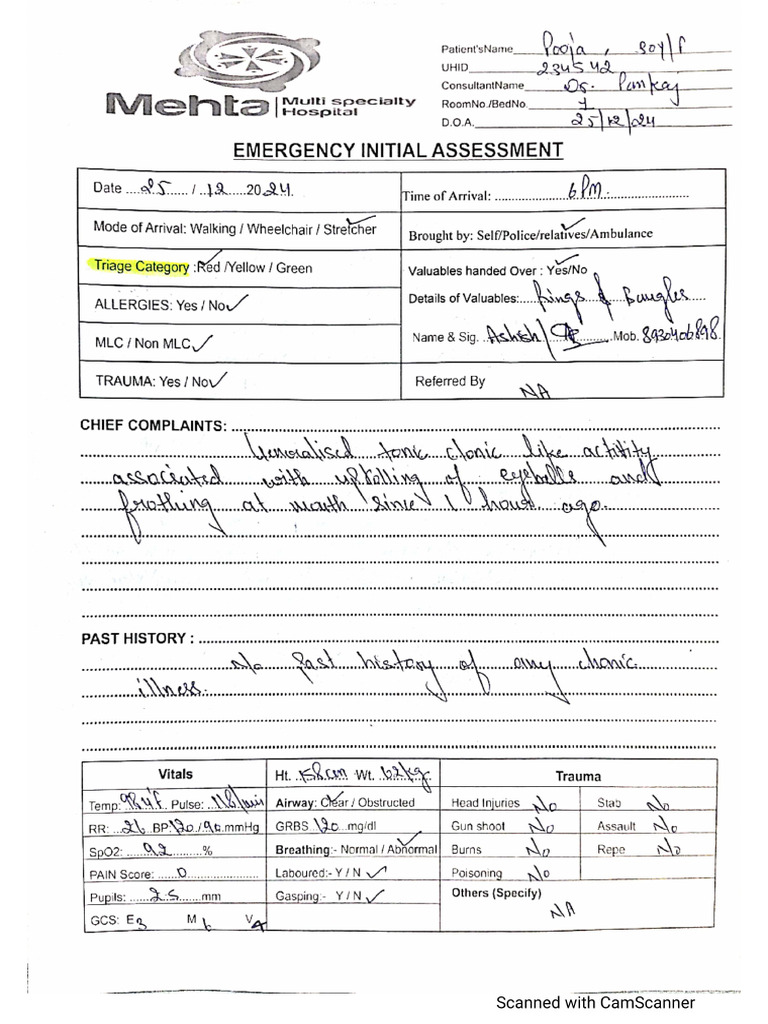 Mehta Multi specialty Hospital
Patient'sName Pooja, 30Y/F
UHID 234542
ConsultantName Dr. Pankaj
RoomNo./BedNo. 1
D.O.A. 25/12/24
EMERGENCY INITIAL ASSESSMENT
Date ....25..... / ..12..... 2024.
Time of Arrival: 6PM
Mode of Arrival: Walking / Wheelchair / Stretcher ✓
Brought by: Self/Police/relatives/Ambulance ✓
Triage Category : Red /Yellow / Green ✓
Valuables handed Over : Yes/No ✓
ALLERGIES: Yes / No ✓
Details of Valuables: Rings & Bangles
MLC / Non MLC ✓
Name & Sig. Ashish Mob. 8930406898
TRAUMA: Yes / No ✓
Referred By NA
CHIEF COMPLAINTS:
Generalised tonic clonic like actitity
associated with uprolling of eyeballs and
frothing at mouth since 1 hour ago.
PAST HISTORY :
No past history of any chonic
illness.
Vitals
Temp: 98.4°F Pulse: 116/min
RR: 26 BP: 120/90 mmHg
SpO2: 92 %
PAIN Score: 0
Pupils: 2.5 mm
GCS: E3 M6 V4
Ht. 158cm Wt. 62kg
Airway: Clear / Obstructed ✓
GRBS 120 mg/dl
Breathing:- Normal / Abnormal ✓
Laboured:- Y / N ✓
Gasping:- Y / N ✓
Trauma
Head Injuries No Stab No
Gun shoot No Assault No
Burns No Repe No
Poisoning No
Others (Specify)
NA
Scanned with CamScanner